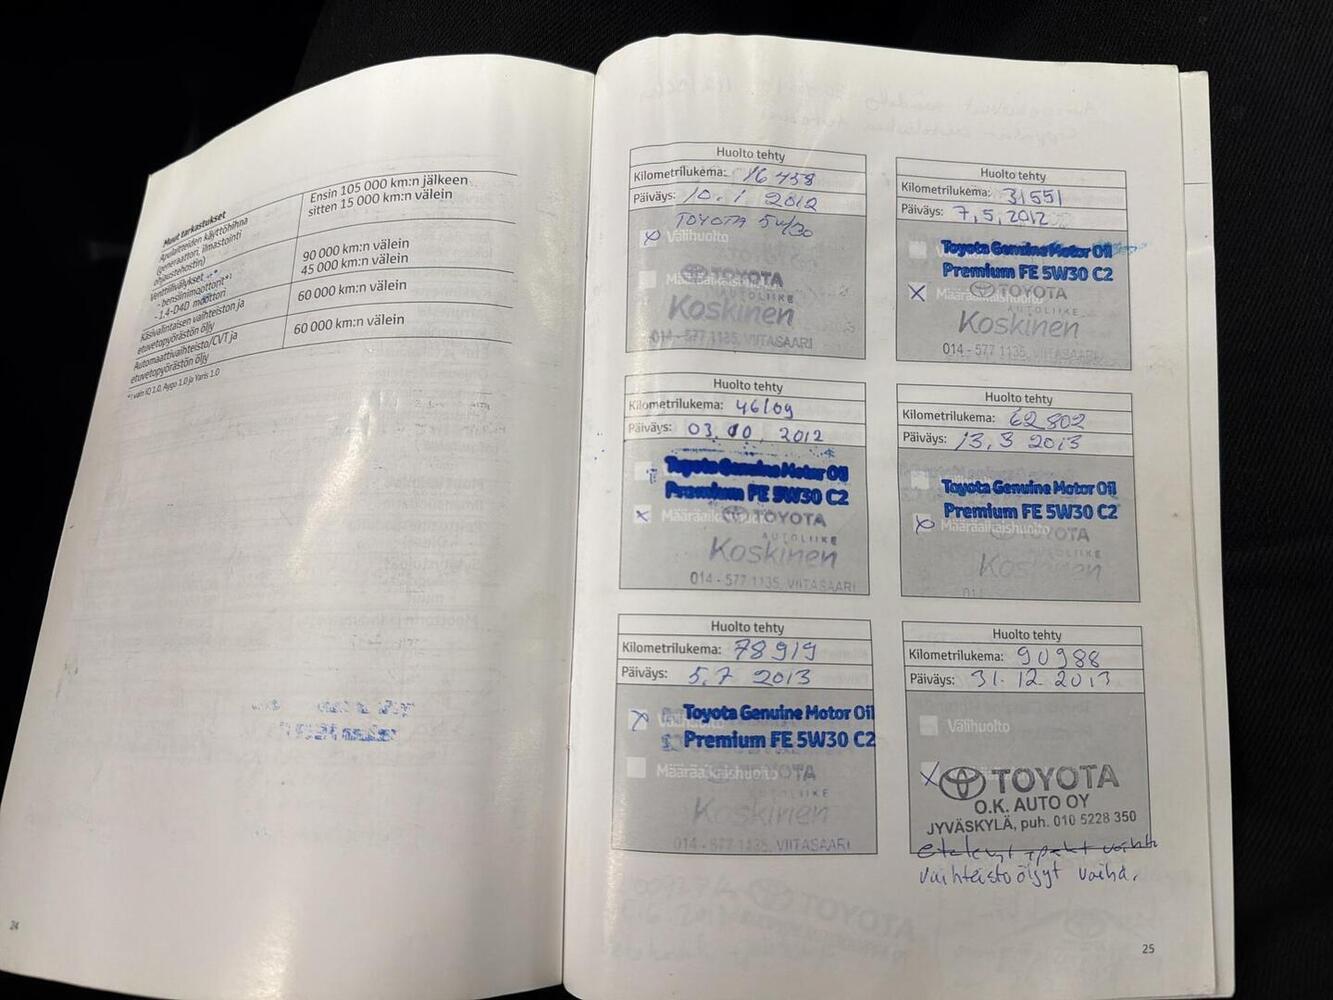 Muut tarkastukset
Apulaitteiden käyttöhihna
(generaattori, ilmastointi
ohjaustehostin)
Ensin 105 000 km:n jälkeen
sitten 15 000 km:n välein
Venttiilivälykset
- bensiinimoottorit*¹
- 1.4-D4D moottori
90 000 km:n välein
45 000 km:n välein
Käsivalintaisen vaihteiston ja
etuvetopyörästön öljy
60 000 km:n välein
Automaattivaihteisto/CVT ja
etuvetopyörästön öljy
60 000 km:n välein
*¹ vain IQ 1.0, Aygo 1.0 ja Yaris 1.0
24
Huolto tehty
Kilometrilukema: 16 458
Päiväys: 10. 1 2012
TOYOTA 5w/30
x Välihuolto
Määräaikaishuolto
TOYOTA
AUTOLIIKE
Koskinen
014 - 577 1135, VIITASAARI
Huolto tehty
Kilometrilukema: 31551
Päiväys: 7,5,2012
Toyota Genuine Motor Oil
Premium FE 5W30 C2
x Määräaikaishuolto
TOYOTA
AUTOLIIKE
Koskinen
014 - 577 1135, VIITASAARI
Huolto tehty
Kilometrilukema: 46109
Päiväys: 03. 10. 2012
Toyota Genuine Motor Oil
Premium FE 5W30 C2
x Määräaikaishuolto
TOYOTA
AUTOLIIKE
Koskinen
014 - 577 1135, VIITASAARI
Huolto tehty
Kilometrilukema: 62 802
Päiväys: 13. 3 2013
Toyota Genuine Motor Oil
Premium FE 5W30 C2
x Määräaikaishuolto
TOYOTA
AUTOLIIKE
Koskinen
Huolto tehty
Kilometrilukema: 78919
Päiväys: 5.7 2013
x Toyota Genuine Motor Oil
Premium FE 5W30 C2
Määräaikaishuolto
TOYOTA
AUTOLIIKE
Koskinen
014 - 577 1135, VIITASAARI
Huolto tehty
Kilometrilukema: 90988
Päiväys: 31. 12. 2013
Välihuolto
x TOYOTA
O.K. AUTO OY
JYVÄSKYLÄ, puh. 010 5228 350
vaihteistoöljyt vaihd.
25